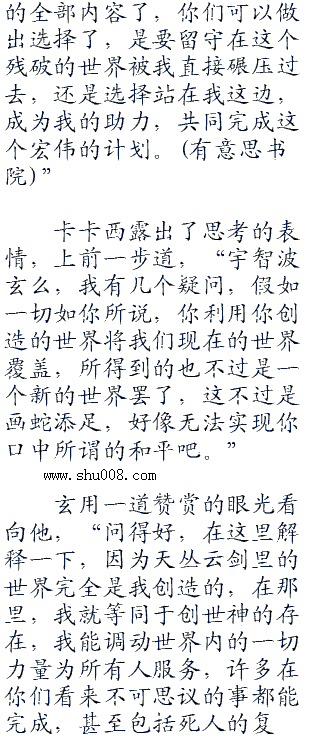 的全部内容了，你们可以做
出选择了，是要留守在这个
残破的世界被我直接碾压过
去，还是选择站在我这边，
成为我的助力，共同完成这
个宏伟的计划。(有意思书
院)”
卡卡西露出了思考的表
情，上前一步道，“宇智波
玄么，我有几个疑问，假如
一切如你所说，你利用你创
造的世界将我们现在的世界
覆盖，所得到的也不过是一
个新的世界罢了，这不过是
画蛇添足，好像无法实现你
口中所谓的和平吧。”
www.shu008.com
玄用一道赞赏的眼光看
向他，“问得好，在这里解
释一下，因为天丛云剑里的
世界完全是我创造的，在那
里，我就等同于创世神的存
在，我能调动世界内的一切
力量为所有人服务，许多在
你们看来不可思议的事都能
完成，甚至包括死人的复